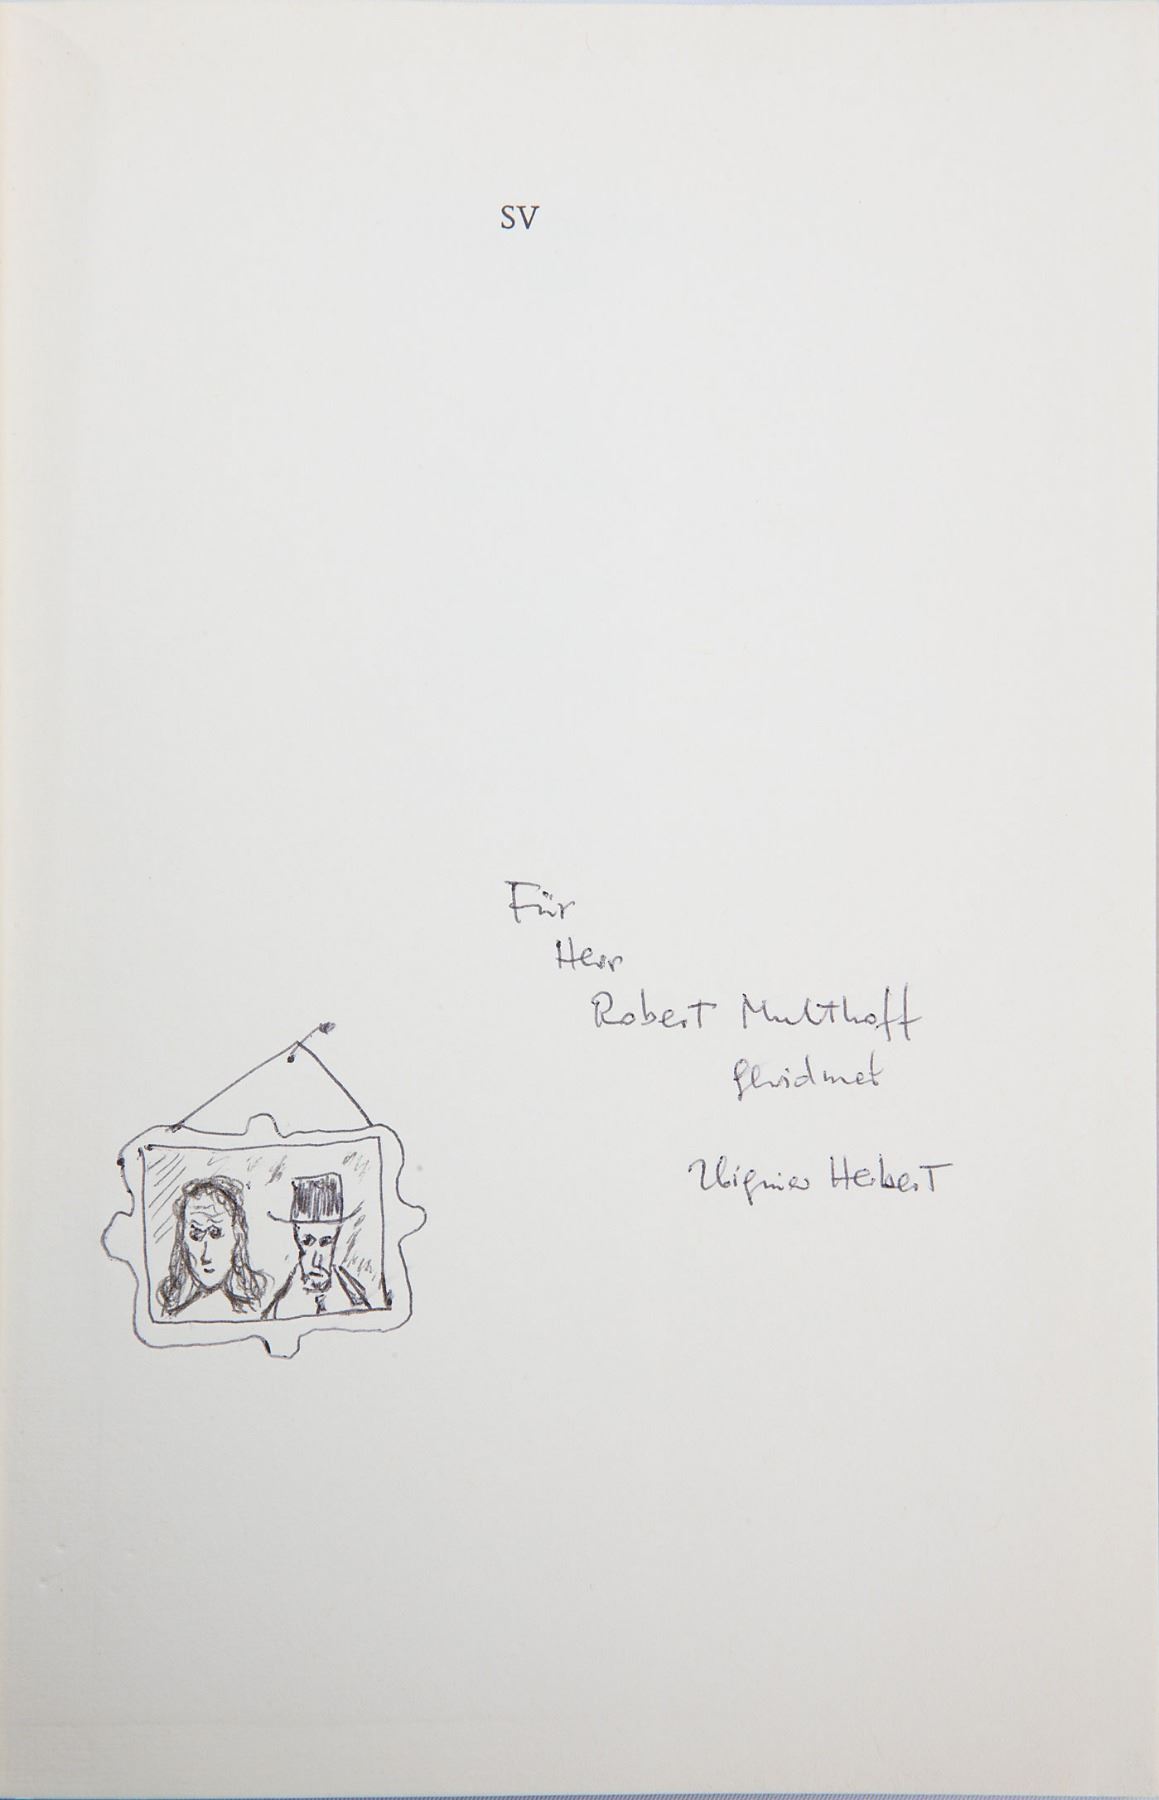 SV
Für
Herr
Robert Multhoff
gewidmet
Zbigniew Herbert